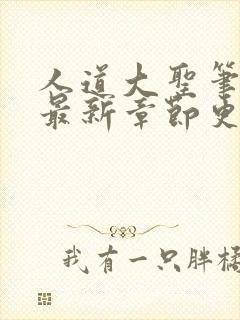 人道大聖筆
最新章節史
我有一只胖橘